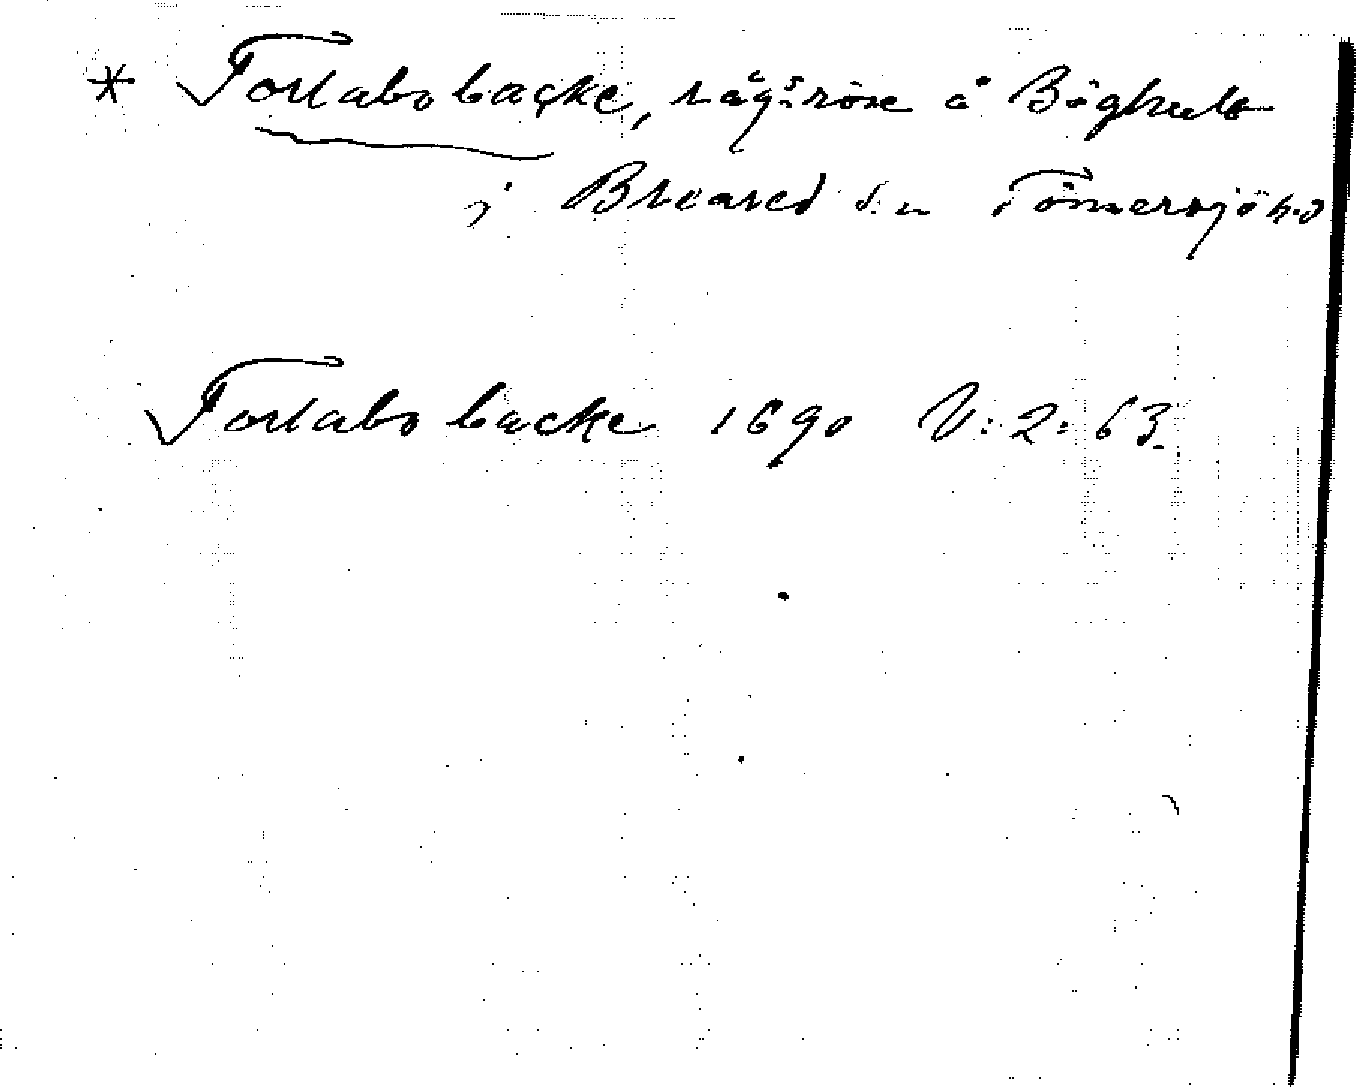 * Torlabo backe, rågöröse å Böghult
i Breared sn Tönnersjö hd
Torlabo backe 1690 V:2:63.